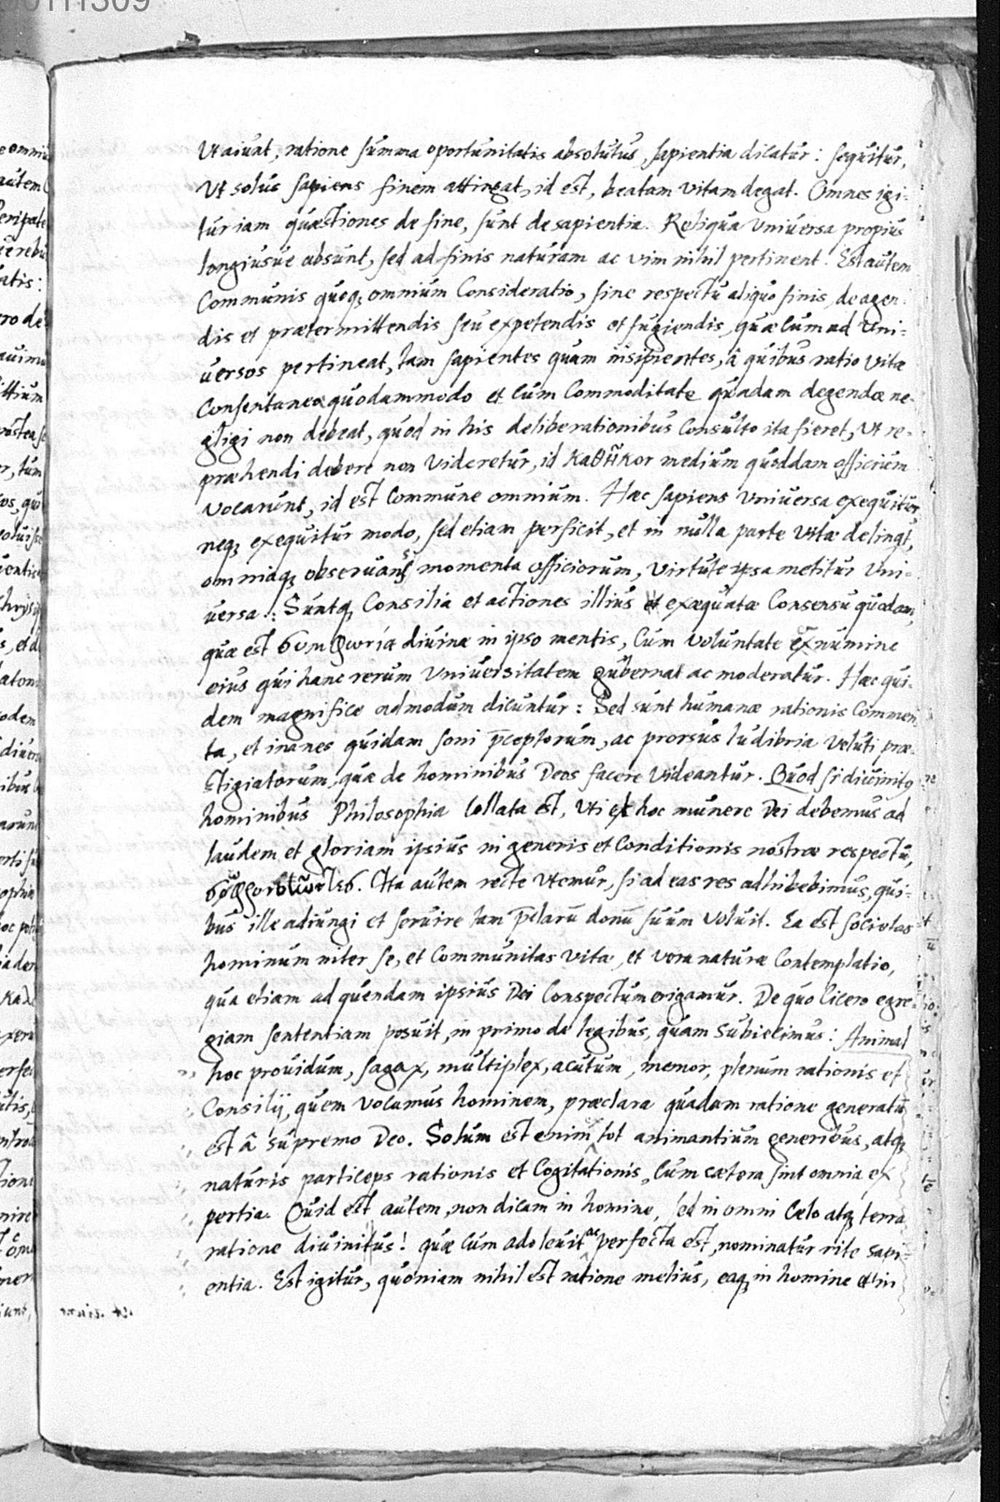 Ut aiunt, ratione summa oportunitatis absolutus, sapientia dicatur: sequitur,
Ut solus sapiens finem attingat, id est, beatam vitam degat. Omnes igi-
tur iam quæstiones de fine, sunt de sapientia. Reliqua universa propius
longiusúe absunt, sed ad finis naturam ac vim nihil pertinent. Est autem
Communis quoq; omnium Consideratio, sine respectu aliquo finis, de agen-
dis et prætermittendis seu expetendis et fugiendis, quæ cum ad Uni-
versos pertineat, tam sapientes quam insipientes, â quibus ratio vitæ
Consentanea quodammodo et cum Commoditate quadam degendæ ne-
gligi non debeat, quod in his deliberationibus Consulto ita fieret, Ut re-
præhendi debere non videretur, id καθῆκον medium quoddam officium
vocarunt, id est Commune omnium. Hæc sapiens Universa exequitur
neq; exequitur modo, sed etiam perficit, et in nulla parte vitæ delinqt,
omniaq; observans momenta officiorum, virtute ipsa metitur Uni-
versa: Suntq; Consilia et actiones illius exæquatæ Consensu quodam,
quæ est συμφωνία divinæ in ipso mentis, Cum voluntate et numine
eius qui hanc rerum Universitatem gubernat ac moderatur. Hæc qui-
dem magnifice admodum dicuntur: Sed sunt humanæ rationis Commen
ta, et inanes quidam soni p̄ceptorum, ac prorsus ludibria veluti præ-
stigiatorum, quæ de hominibus Deos facere videantur. Quod si divinitq
hominibus Philosophia Collata est, Uti et hoc munere Dei debemus ad
laudem et gloriam ipsius in generis et Conditionis nostræ respectu,
Ita autem recte utemur, si ad eas res adhibebimus, qui-
bus ille adiungi et servire tam p̄clarū donū suum voluit. Ea est societas
hominum inter se, et Communitas vitæ, et vera naturæ Contemplatio,
qua etiam ad quendam ipsius Dei Conspectum erigamur. De quo Cicero egre-
giam sententiam posuit, in primo de legibus, quam subiecimus: Animal
hoc providum, sagax, multiplex, acutum, memor, plenum rationis et
Consilij, quem vocamus hominem, præclara quadam ratione generatū
est â supremo Deo. Solum est enim tot animantium generibus, atq;
naturis particeps rationis et Cogitationis, Cum cætera sint omnia ex
pertia. Quid est autem, non dicam in homine, sed in omni Cælo atq; terra
ratione divinitus! quæ cum adolevit ac perfecta est, nominatur rite sapi-
entia. Est igitur, quoniam nihil est ratione melius, eaq; in homine et in